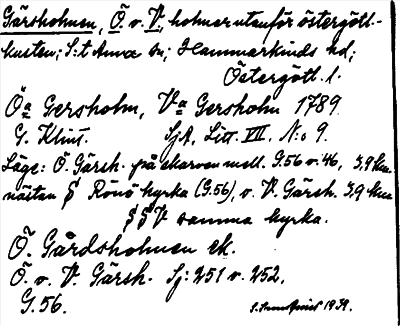 Gärsholmen, Ö. o. V., holmar utanför östergötl.-
kusten; S:t Anna sn; Hammarkinds hd;
Östergötl. l.
Öa Gersholm, Va Gersholm 1789.
G. Klint. SjK, Litt. VII, N:o 9.
Läge: Ö. Gärsh. på skarven mell. G.56 o. 46, 3,9 km
nästan S Rönö kyrka (G.56), o. V. Gärsh. 3,9 km
SSV samma kyrka.
Ö. Gärdsholmen ek.
Ö. o. V. Gärsh. Sj: 251 o. 252.
G.56.
1939.